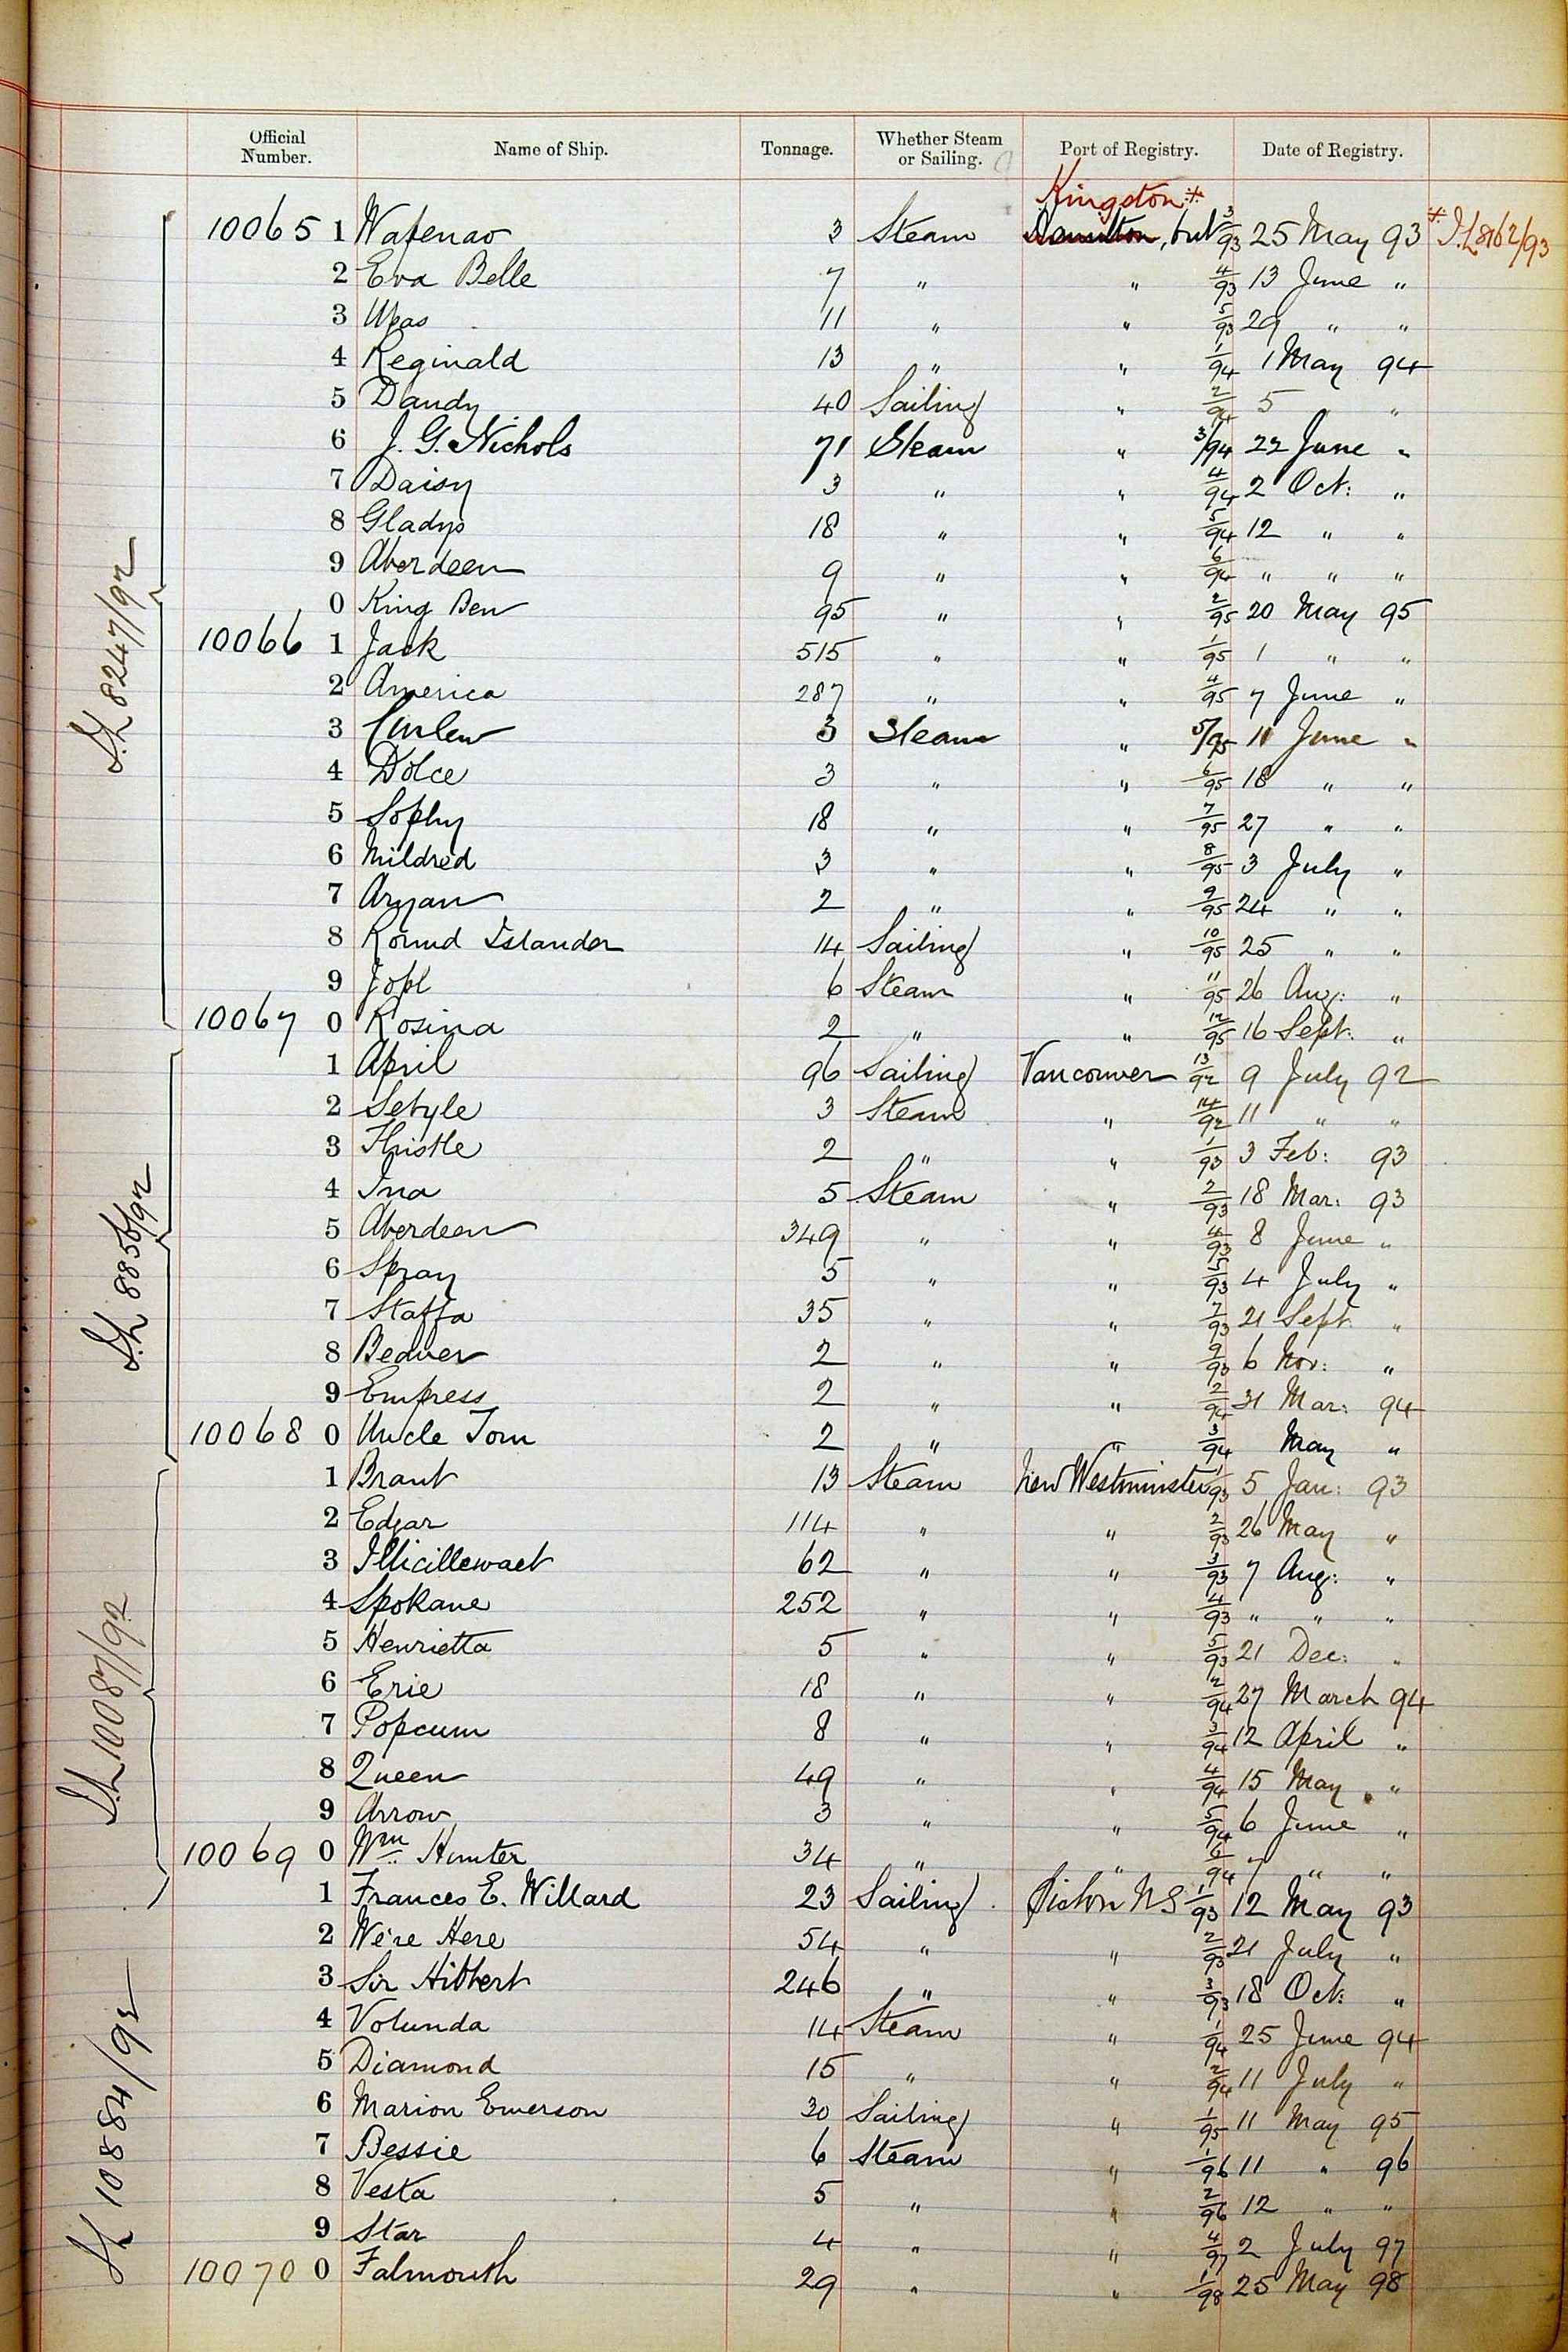 Official Number. Name of Ship. Tonnage. Whether Steam or Sailing. Port of Registry. Date of Registry.
Kingston *
10065 1 3 Steam Hamilton, Ont 3/93 25 May 93 * 8162/93
2 Eva Belle 7 " " 4/93 13 June "
3 Upas 11 " " 5/93 29 " "
4 Reginald 13 " " 1/94 1 May 94
5 Dandy 40 Sailing " 2/94 5 " "
6 J. G. Nichols 71 Steam " 3/94 22 June "
7 Daisy 3 " " 4/94 2 Oct: "
8 Gladys 18 " " 5/94 12 " "
9 Aberdeen 9 " " 6/94 " " "
0 King Ben 95 " " 2/95 20 May 95
10066 1 Jack 515 " " 1/95 1 " "
2 America 287 " " 4/95 7 June "
3 Curlew 3 Steam " 5/95 11 June "
4 Dolce 3 " " 6/95 18 " "
5 Sophy 18 " " 7/95 27 " "
6 Mildred 3 " " 8/95 3 July "
7 Aryan 2 " " 9/95 24 " "
8 Round Islander 14 Sailing " 10/95 25 " "
9 Jopl 6 Steam " 11/95 26 Aug: "
10067 0 Rosina 2 " " 12/95 16 Sept: "
8247/92
1 April 96 Sailing Vancouver 13/92 9 July 92
2 3 Steam " 14/92 11 " "
3 Thistle 2 " " 1/93 3 Feb: 93
4 Ina 5 Steam " 2/93 18 Mar: 93
5 Aberdeen 349 " " 4/93 8 June "
6 Spray 5 " " 5/93 4 July "
7 Staffa 35 " " 7/93 21 Sept "
8 Beaver 2 " " 9/93 6 Nov: "
9 Empress 2 " " 2/94 31 Mar: 94
10068 0 Uncle Tom 2 " " 3/94 May "
8856/92
1 Brant 13 Steam New Westminster 1/93 5 Jan: 93
2 Edgar 114 " " 2/93 26 May "
3 Illicillewaet 62 " " 3/93 7 Aug: "
4 Spokane 252 " " 4/93 " " "
5 Henrietta 5 " " 5/93 21 Dec: "
6 Erie 18 " " 2/94 27 March 94
7 Popcum 8 " " 3/94 12 April "
8 Queen 49 " " 4/94 15 May "
9 Arrow 3 " " 5/94 6 June "
10069 0 Wm Hunter 34 " " 6/94 7 " "
10087/92
1 Frances E. Willard 23 Sailing Pictou NS 1/93 12 May 93
2 We're Here 54 " " 2/93 21 July "
3 Sir Hibbert 246 " " 3/93 18 Oct: "
4 Volunda 14 Steam " 1/94 25 June 94
5 Diamond 15 " " 2/94 11 July "
6 Marion Emerson 30 Sailing " 1/95 11 May 95
7 Bessie 6 Steam " 1/96 11 " 96
8 Vesta 5 " " 2/96 12 " "
9 Star 4 " " 4/97 2 July 97
10070 0 Falmouth 29 " " 1/98 25 May 98
10884/92